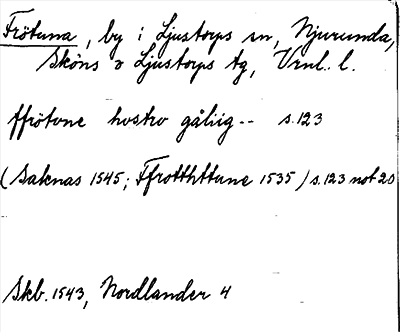 Frötuna, by i Ljustorps sn, Njurunda,
Sköns o Ljustorps tg, Vrnl. l.
ffrötvne hvstrv gåliig-- s.123
(Saknas 1545; Ffrotthttune 1535) s.123 not 20
Skb. 1543, Nordlander 4